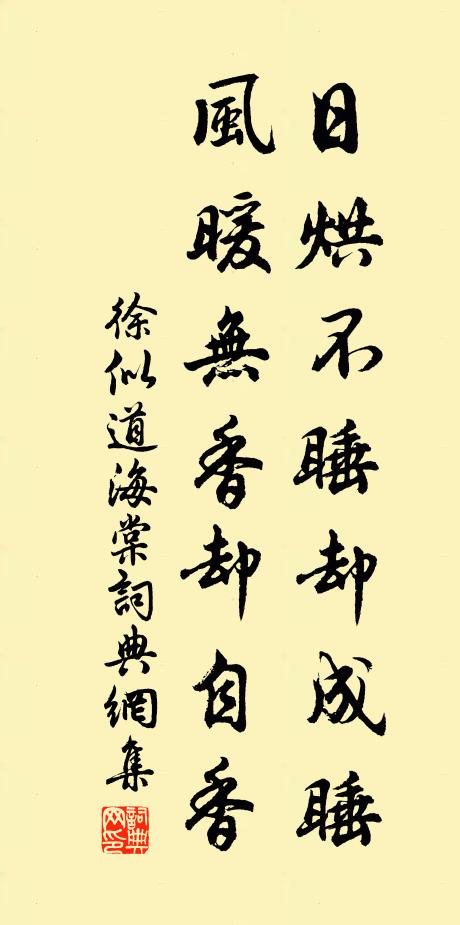 日烘不睡却成睡
風暖無香却自香
徐似道海棠詞典網集
詞典網印